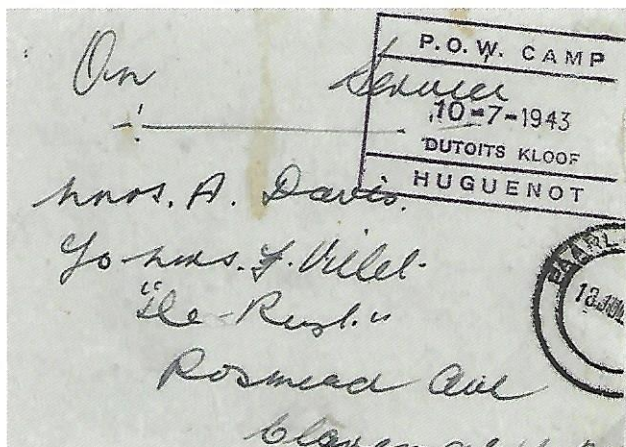 On Service
P.O.W. CAMP
10-7-1943
DUTOITS KLOOF
HUGUENOT
Mrs. A. Davis.
c/o Mrs. F. Villet.
"De-Rust."
Rosmead Ave
PAARL